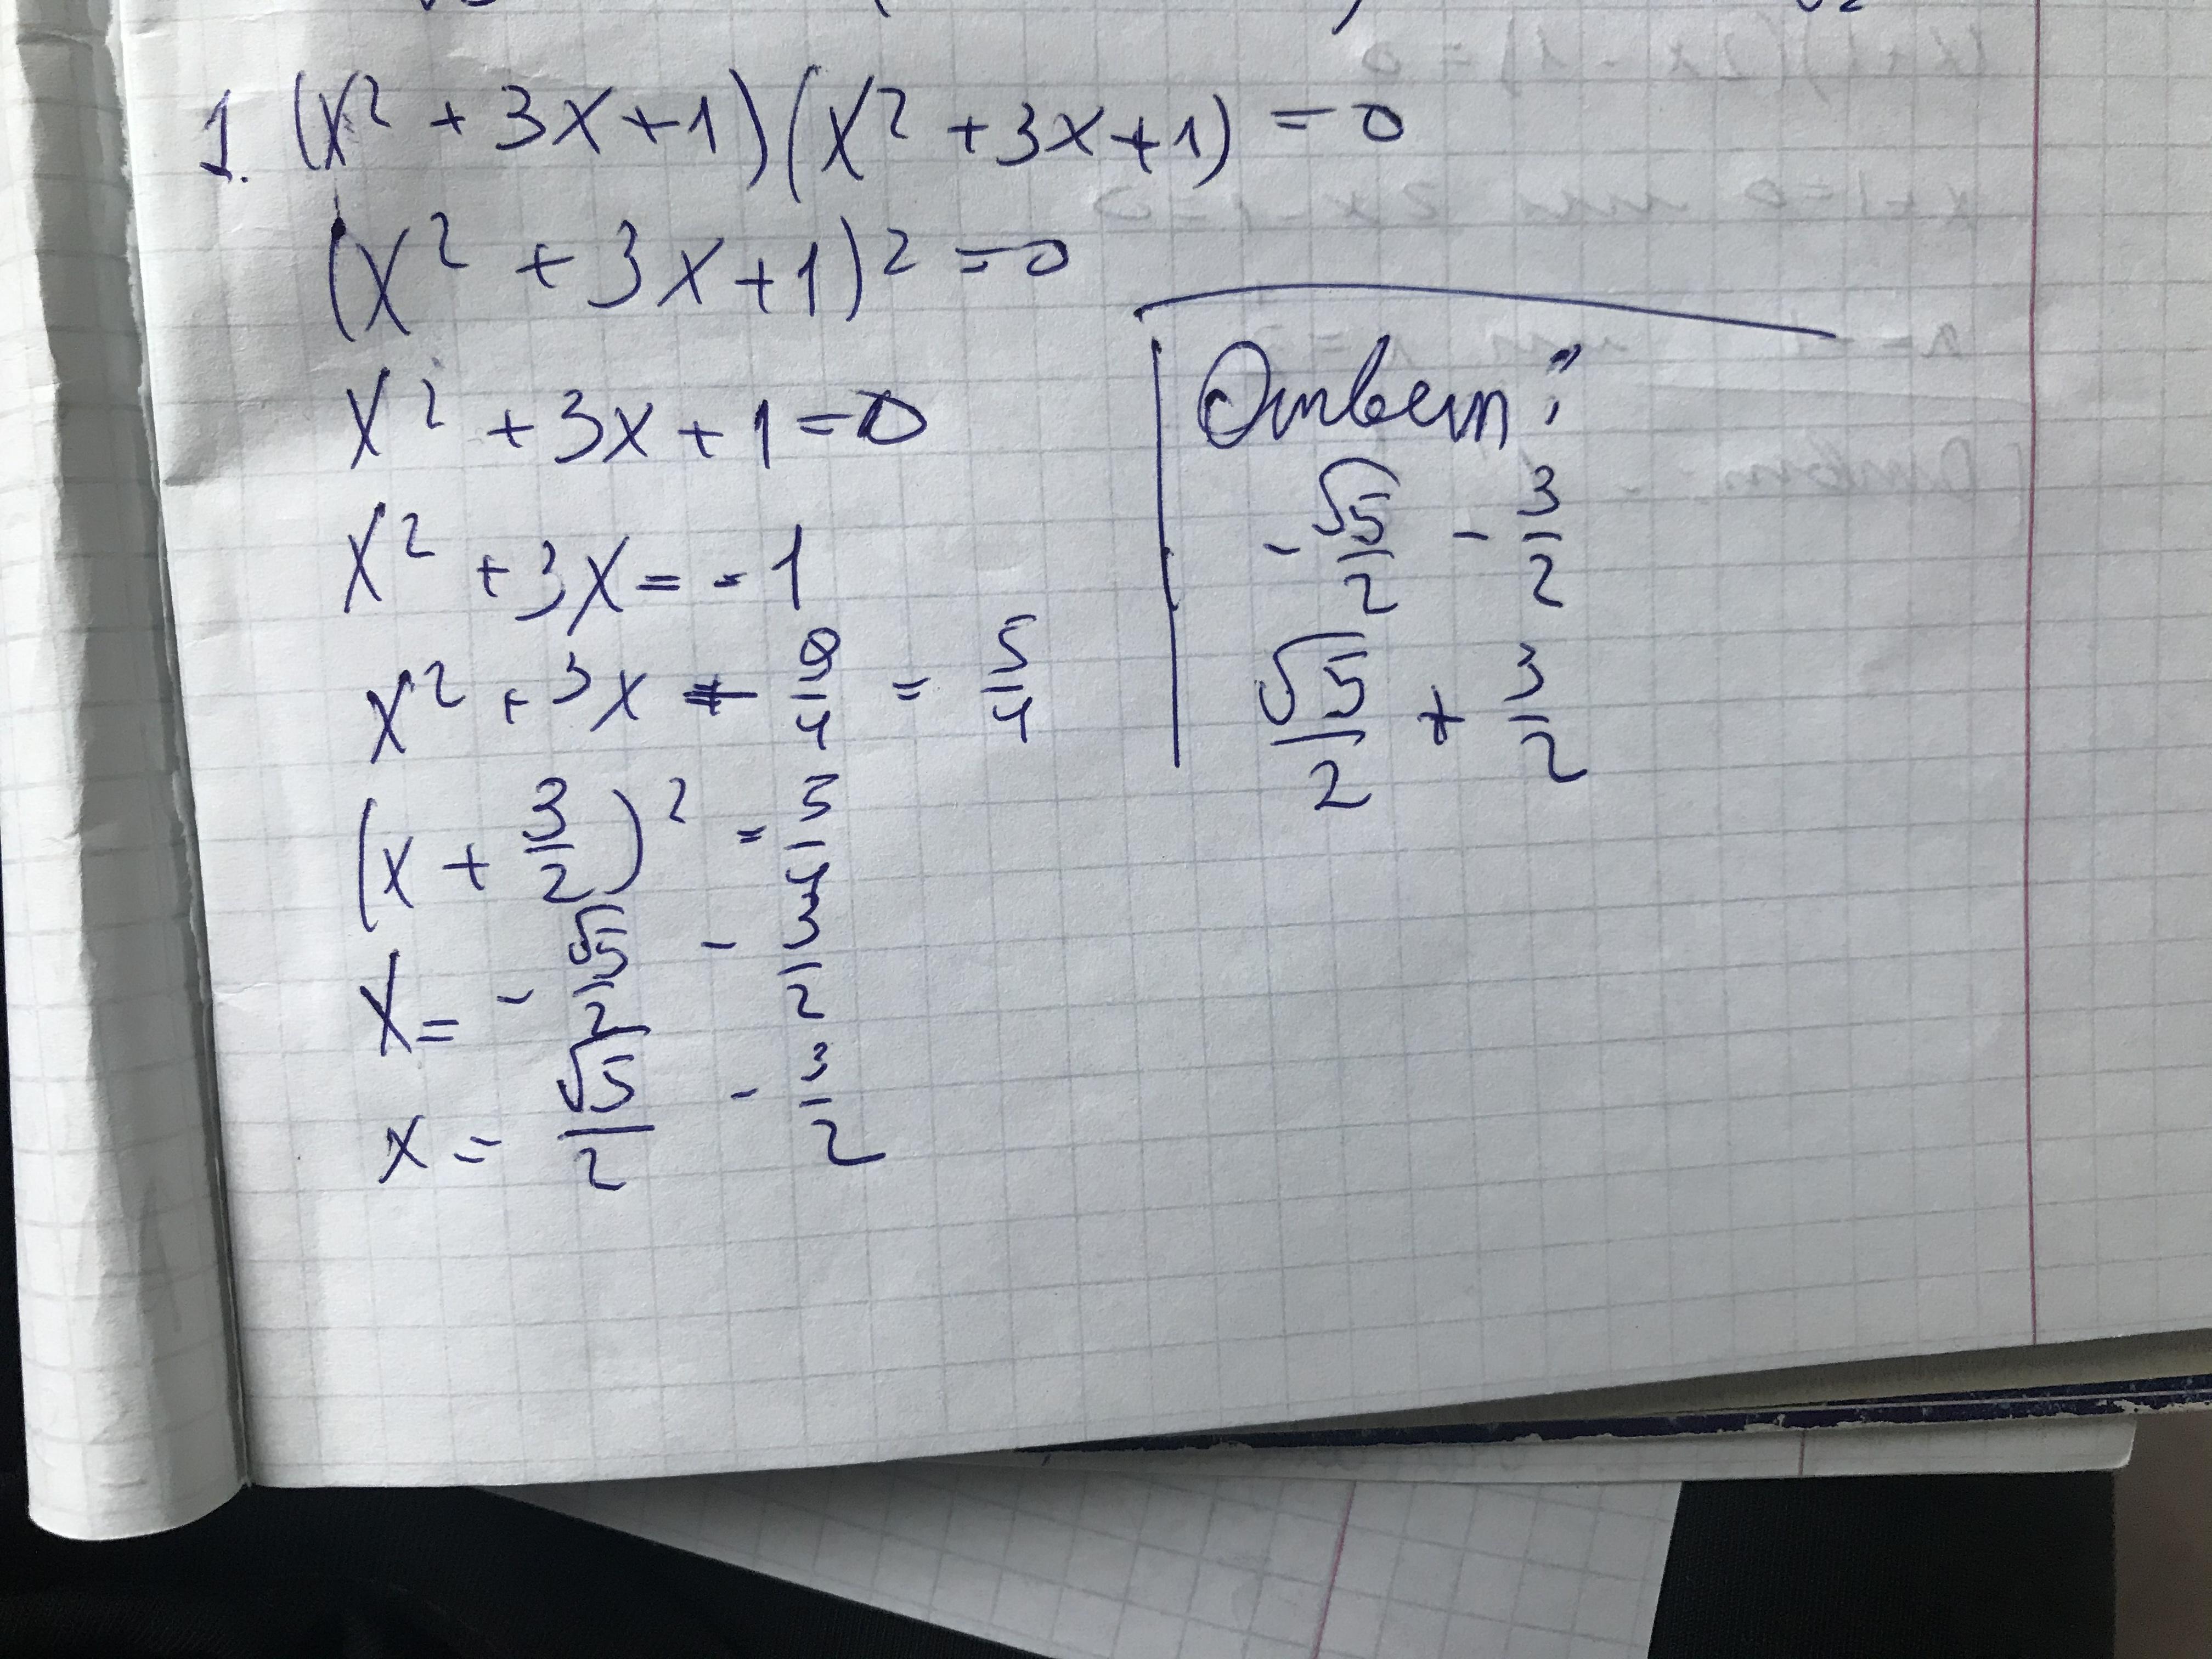 1. (x² + 3x + 1)(x² + 3x + 1) = 0
(x² + 3x + 1)² = 0
x² + 3x + 1 = 0
x² + 3x = -1
x² + 3x + 9/4 = 5/4
(x + 3/2)² = 5/4
x = - √5/2 - 3/2
x = √5/2 - 3/2
Ответ:
- √5/2 - 3/2
√5/2 + 3/2